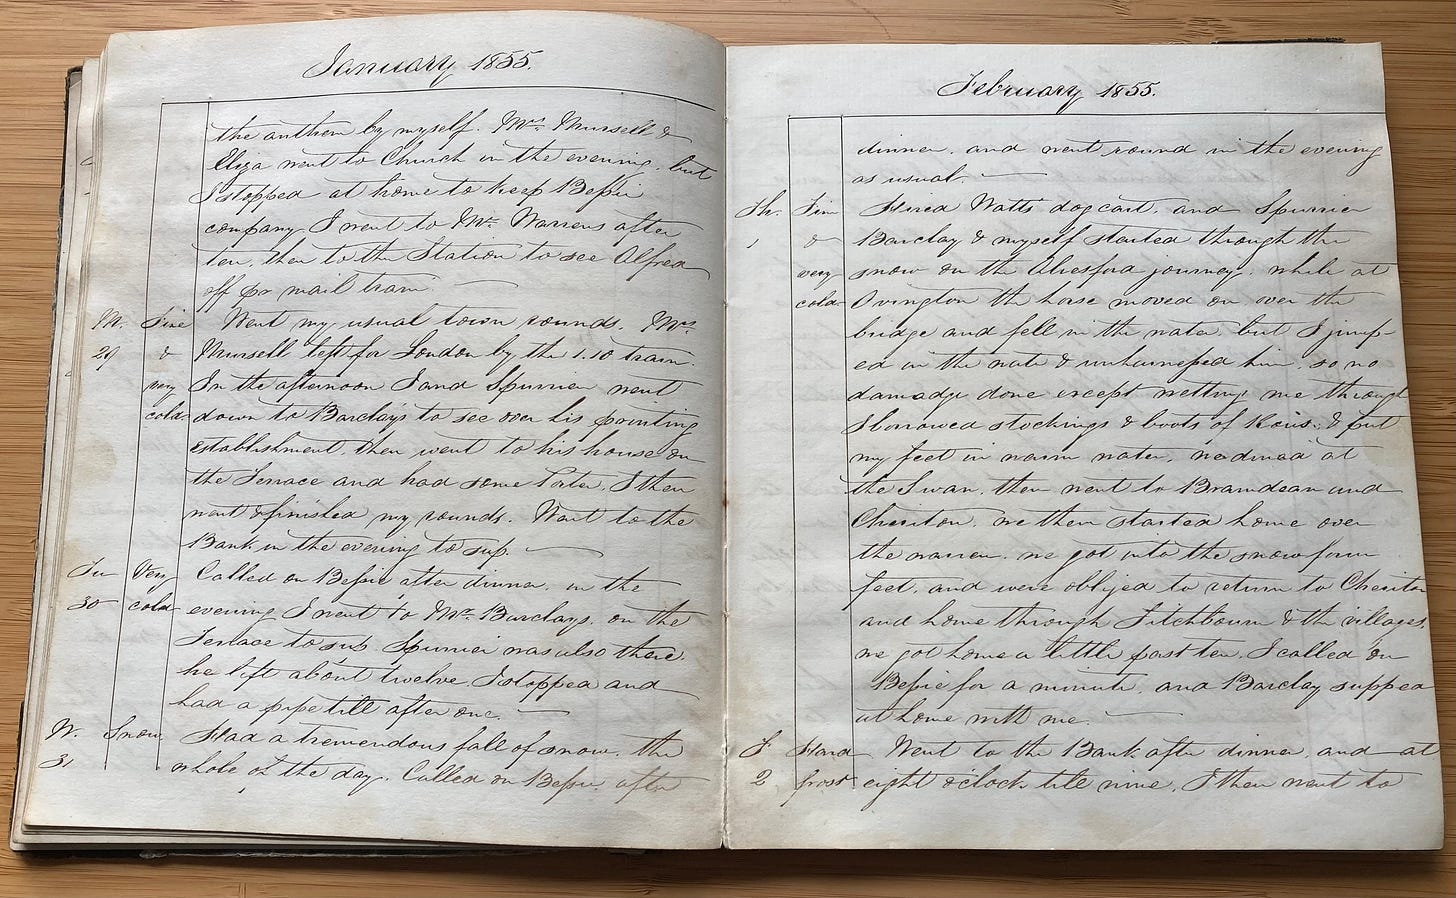 January 1855.
the anthem by myself. Mrs. Mursell &
Eliza went to Church in the evening. but
I stopped at home to keep Bessie
company I went to Mr. Warrens after
ten, then to the Station to see Alfred
off pr mail train.
M. Fine Went my usual town rounds. Mrs.
29 & Mursell left for London by the 1.10 train.
very In the afternoon I and Spurrier went
cold down to Barclay's to see over his printing
establishment. then went to his house on
the Terrace and had some Porter. I then
went & finished my rounds. Went to the
Bank in the evening to sup.
Tu Very Called on Bessie after dinner. in the
30 cold evening I went to Mr. Barclays. on the
Terrace to sup. Spurrier was also there.
he left about twelve. I stopped and
had a pipe till after one.
W. Snow. Had a tremendous fall of snow. the
31 whole of the day. Called on Bessie. after
February 1855.
dinner. and went round in the evening
as usual.
Th. Fine Hired Watts dog cart. and Spurrier
1 & Barclay & myself started through the
very snow on the Alresford journey. while at
cold Ovington the horse moved on over the
bridge and fell in the water. but I jump-
ed in the wate & unharnessed him. so no
damadge done except wetting me through
I borrowed stockings & boots of & put
my feet in warm water. we dined at
the Swan. then went to Bramdean and
Cheriton. we then started home over
the warren. we got into the snow four
feet. and were obliged to return to Cheriton
and home through Titchbourn & the villages.
we got home a little past ten. I called on
Bessie for a minute. and Barclay supped
at home with me.
F Hard Went to the Bank after dinner. and at
2 frost eight o'clock till nine. I then went to